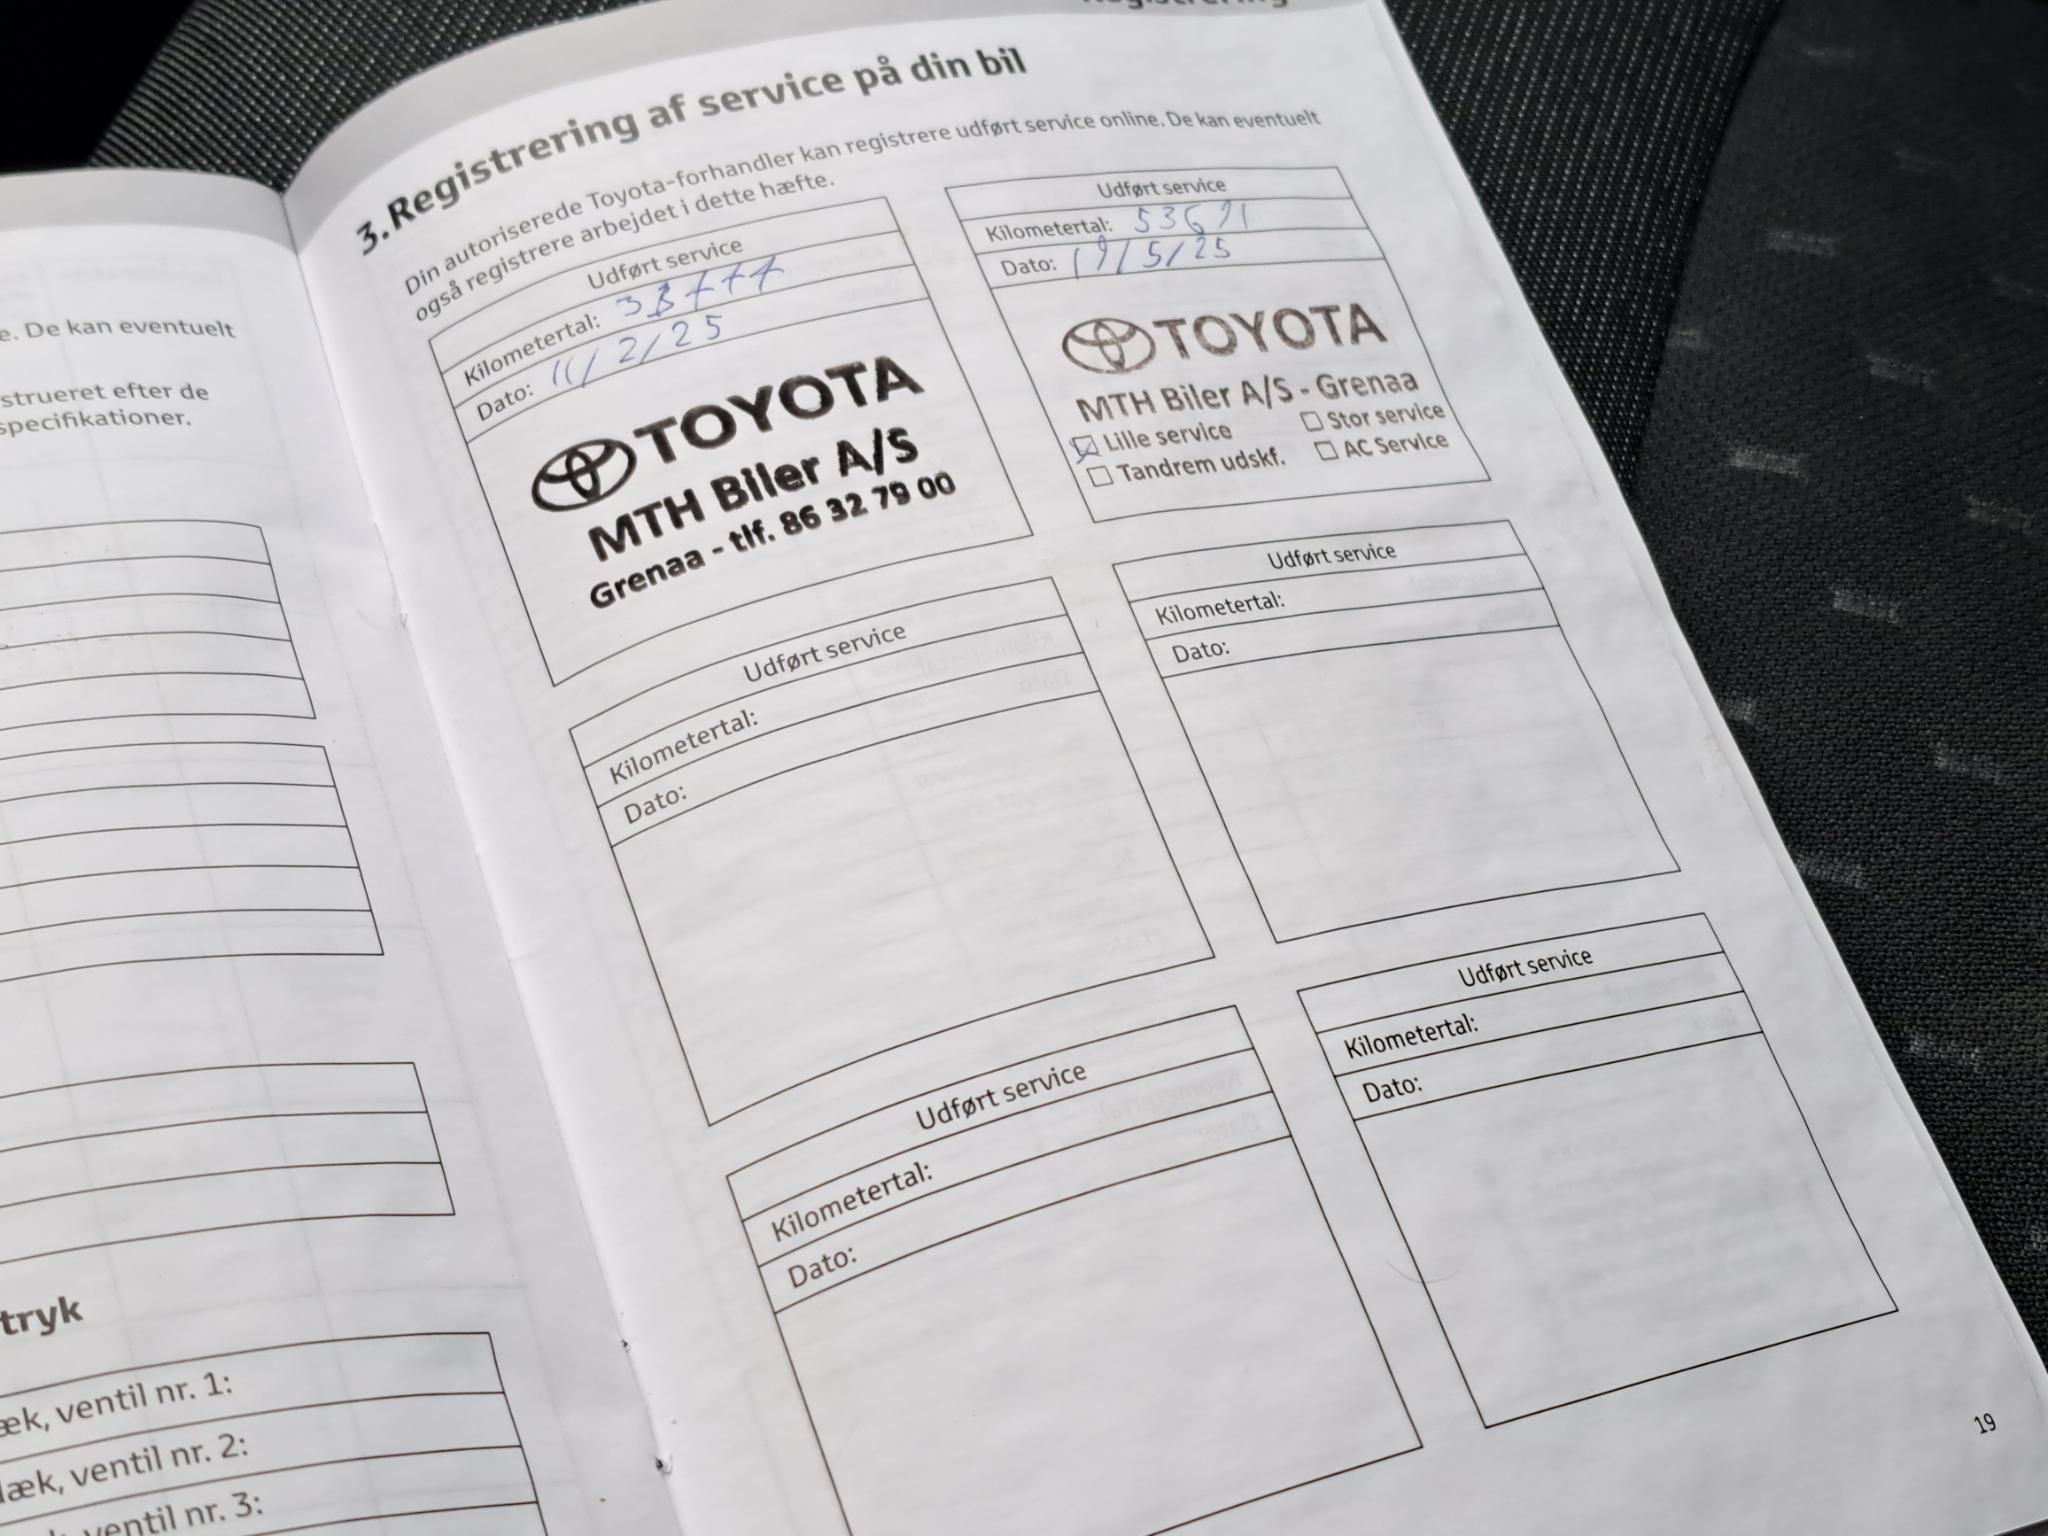 3. Registrering af service på din bil
Din autoriserede Toyota-forhandler kan registrere udført service online. De kan eventuelt
også registrere arbejdet i dette hæfte.
Udført service
Kilometertal:
Dato: 11/2/25
TOYOTA
MTH Biler A/S
Grenaa - tlf. 86 32 79 00
Udført service
Kilometertal: 53671
Dato: 19/5/25
TOYOTA
MTH Biler A/S - Grenaa
Lille service
Stor service
Tandrem udskf.
AC Service
Udført service
Kilometertal:
Dato:
Udført service
Kilometertal:
Dato:
Udført service
Kilometertal:
Dato:
Udført service
Kilometertal:
Dato:
19
e. De kan eventuelt
strueret efter de
specifikationer.
tryk
æk, ventil nr. 1:
læk, ventil nr. 2:
ventil nr. 3: